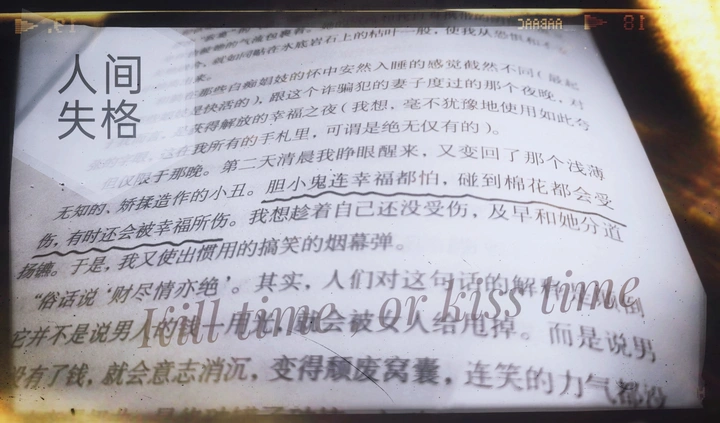 人间
失格
那些白痴娼妓的怀中安然入睡的感觉截然不同(最起
快活的),跟这个诈骗犯的妻子度过的那个夜晚,对
获得解放的幸福之夜(我想,毫不犹豫地使用如此夸
在我所有的手札里,可谓是绝无仅有的)。
但仅限于那晚。第二天清晨我睁眼醒来,又变回了那个浅薄
无知的、矫揉造作的小丑。胆小鬼连幸福都怕,碰到棉花都会受
伤,有时还会被幸福所伤。我想趁着自己还没受伤,及早和她分道
扬镳。于是,我又使出惯用的搞笑的烟幕弹。
“俗话说‘财尽情亦绝’。其实,人们对这句话的解
它并不是说男人的钱一用光,就会被女人给甩掉。而是说男
没有了钱,就会意志消沉,变得颓废窝囊,连笑的力气都没
Kill time, or kiss time